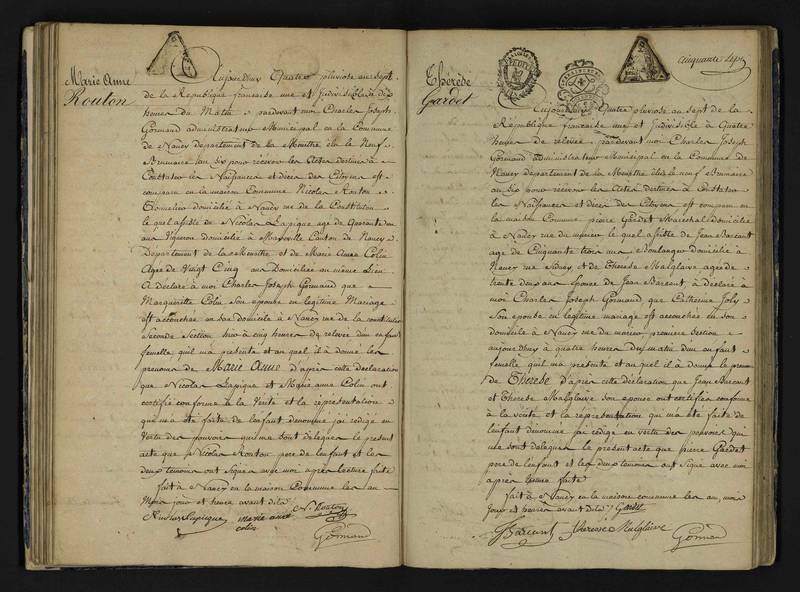 Marie Anne
Routon
Aujourdhuy Quatre pluviose an sept
de la Republique francaise une et Indivisible à dix
heures du Matin pardevant moi Charles Joseph
Gormand administrateur Municipal en la Commune
de Nancy departement de la Meurthe élu le Neuf
Brumaire an six pour récevoir les Actes destinés à
Constater les Naissances et décès des Citoyens est
comparu en la maison Commune Nicolas Routon
domicilié à Nancy rue de la Constitution
le quel assisté de Nicolas Lapique age de Quarante un
ans Vigneron domicilié à Maxeville Canton de Nancy
Departement de la Meurthe et de Marie Anne Colin
Agée de Vingt Cinq ans Domiciliée au même lieu
A declaré à moi Charles Joseph Gormand que
Margueritte Colin Son epouse en legitime Mariage
est accouchée en son domicile à Nancy rue de la constitution
Seconde Section hier à cinq heures de relevée d'un enfant
femelle, quil ma présenté et au quel il à donné les
prenoms de Marie Anne d'après cette déclaration
que Nicolas Lapique et Marie anne Colin ont
certifié conforme à la Vérité et la représentation
qui ma été faite de lenfant denommé jai redigé en
Vertu des pouvoirs qui me sont délégués le présent
acte que Nicolas Routon pere de lenfant et les
deux temoins ont signés avec moi après lecture faite
fait à Nancy en la maison Commune les an
Mois jour et heure avant dits
Nicolas Lapique marie anne N. Routon
colin
Gormand
cinquante Sept
Thérèse
Gardet
Aujourdhuy Quatre pluviose an sept de la
République francaise une et Indivisible à Quatre
heures de relevée, pardevant moi Charles Joseph
Gormand administrateur Municipal en la Commune de
Nancy departement de la Meurthe élu le neuf Brumaire
an six pour récevoir les Actes destinés à Constater
les Naissances et décès des Citoyens est comparu en
la maison Commune pierre Gardet Marechal domicilié
à Nancy rue du le quel assisté de Jean
age de Cinquante trois ans Boulanger domicilié à
Nancy rue et de Therese Malglaive agée de
trente deux ans épouse de Jean à déclaré à
moi Charles Joseph Gormand que Catherine Joly
Son epouse en legitime mariage est accouchée en son
domicile à Nancy rue du première section
aujourdhuy à quatre heures du matin d'un enfant
femelle quil ma présenté et au quel il à donné le prenom
de Thérèse d'après cette déclaration que Jean
et Therese Malglaive son epouse ont certifié conforme
à la vérité et la représentation qui ma été faite de
lenfant denommé jai redigé en vertu des pouvoirs qui
me sont délégués le présent acte que pierre Gardet
pere de lenfant et les deux temoins ont signé avec moi
après lecture faite
fait à Nancy en la maison commune les an, mois
jour et heure avant dits Gardet
Therese Malglaive Gormand